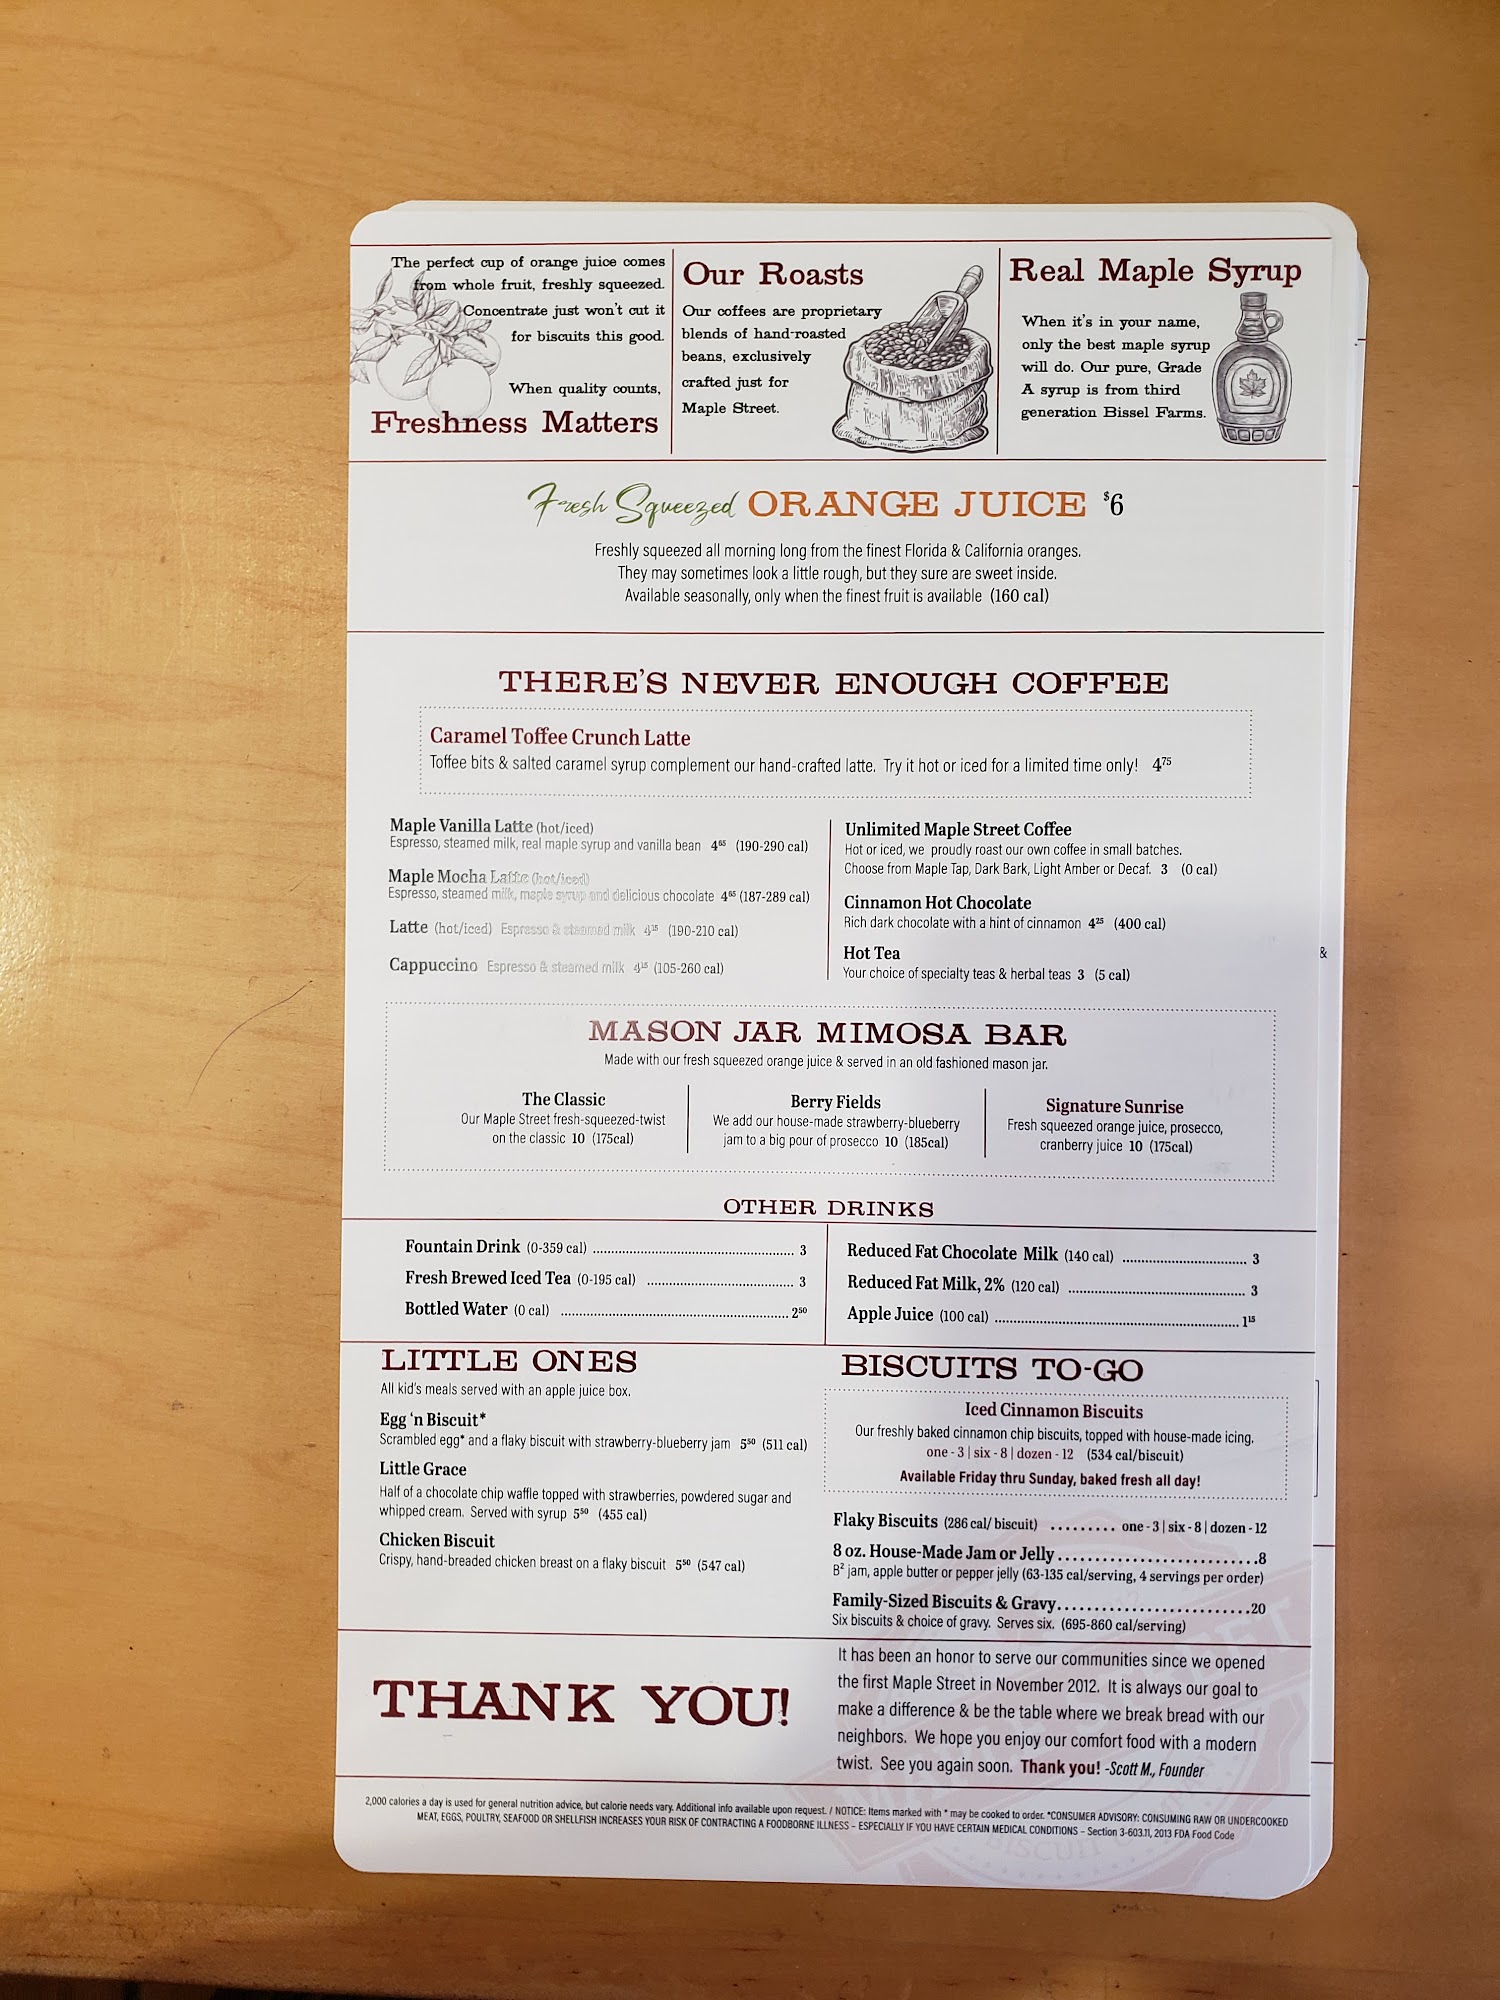 The perfect cup of orange juice comes
from whole fruit, freshly squeezed.
Concentrate just won't cut it
for biscuits this good.
When quality counts,
Freshness Matters
Our Roasts
Our coffees are proprietary
blends of hand-roasted
beans, exclusively
crafted just for
Maple Street.
Real Maple Syrup
When it's in your name,
only the best maple syrup
will do. Our pure, Grade
A syrup is from third
generation Bissel Farms.
Fresh Squeezed ORANGE JUICE $6
Freshly squeezed all morning long from the finest Florida & California oranges.
They may sometimes look a little rough, but they sure are sweet inside.
Available seasonally, only when the finest fruit is available (160 cal)
THERE'S NEVER ENOUGH COFFEE
Caramel Toffee Crunch Latte
Toffee bits & salted caramel syrup complement our hand-crafted latte. Try it hot or iced for a limited time only! 4⁷⁵
Maple Vanilla Latte (hot/iced)
Espresso, steamed milk, real maple syrup and vanilla bean 4⁶⁵ (190-290 cal)
Maple Mocha Latte (hot/iced)
Espresso, steamed milk, maple syrup and delicious chocolate 4⁶⁵ (187-289 cal)
Latte (hot/iced) Espresso & steamed milk 4¹⁵ (190-210 cal)
Cappuccino Espresso & steamed milk 4¹⁵ (105-260 cal)
Unlimited Maple Street Coffee
Hot or iced, we proudly roast our own coffee in small batches.
Choose from Maple Tap, Dark Bark, Light Amber or Decaf. 3 (0 cal)
Cinnamon Hot Chocolate
Rich dark chocolate with a hint of cinnamon 4²⁵ (400 cal)
Hot Tea
Your choice of specialty teas & herbal teas 3 (5 cal)
&
MASON JAR MIMOSA BAR
Made with our fresh squeezed orange juice & served in an old fashioned mason jar.
The Classic
Our Maple Street fresh-squeezed-twist
on the classic 10 (175cal)
Berry Fields
We add our house-made strawberry-blueberry
jam to a big pour of prosecco 10 (185cal)
Signature Sunrise
Fresh squeezed orange juice, prosecco,
cranberry juice 10 (175cal)
OTHER DRINKS
Fountain Drink (0-359 cal) ........ 3
Fresh Brewed Iced Tea (0-195 cal) ........ 3
Bottled Water (0 cal) ........ 2⁵⁰
Reduced Fat Chocolate Milk (140 cal) ........ 3
Reduced Fat Milk, 2% (120 cal) ........ 3
Apple Juice (100 cal) ........ 1¹⁵
LITTLE ONES
All kid's meals served with an apple juice box.
Egg 'n Biscuit*
Scrambled egg* and a flaky biscuit with strawberry-blueberry jam 5⁵⁰ (511 cal)
Little Grace
Half of a chocolate chip waffle topped with strawberries, powdered sugar and
whipped cream. Served with syrup 5⁵⁰ (455 cal)
Chicken Biscuit
Crispy, hand-breaded chicken breast on a flaky biscuit 5⁵⁰ (547 cal)
BISCUITS TO-GO
Iced Cinnamon Biscuits
Our freshly baked cinnamon chip biscuits, topped with house-made icing.
one - 3 | six - 8 | dozen - 12 (534 cal/biscuit)
Available Friday thru Sunday, baked fresh all day!
Flaky Biscuits (286 cal/ biscuit) ......... one - 3 | six - 8 | dozen - 12
8 oz. House-Made Jam or Jelly ........ 8
B² jam, apple butter or pepper jelly (63-135 cal/serving, 4 servings per order)
Family-Sized Biscuits & Gravy ........ 20
Six biscuits & choice of gravy. Serves six. (695-860 cal/serving)
THANK YOU!
It has been an honor to serve our communities since we opened
the first Maple Street in November 2012. It is always our goal to
make a difference & be the table where we break bread with our
neighbors. We hope you enjoy our comfort food with a modern
twist. See you again soon. Thank you! -Scott M., Founder
2,000 calories a day is used for general nutrition advice, but calorie needs vary. Additional info available upon request. / NOTICE: Items marked with * may be cooked to order. *CONSUMER ADVISORY: CONSUMING RAW OR UNDERCOOKED
MEAT, EGGS, POULTRY, SEAFOOD OR SHELLFISH INCREASES YOUR RISK OF CONTRACTING A FOODBORNE ILLNESS – ESPECIALLY IF YOU HAVE CERTAIN MEDICAL CONDITIONS – Section 3-603.11, 2013 FDA Food Code